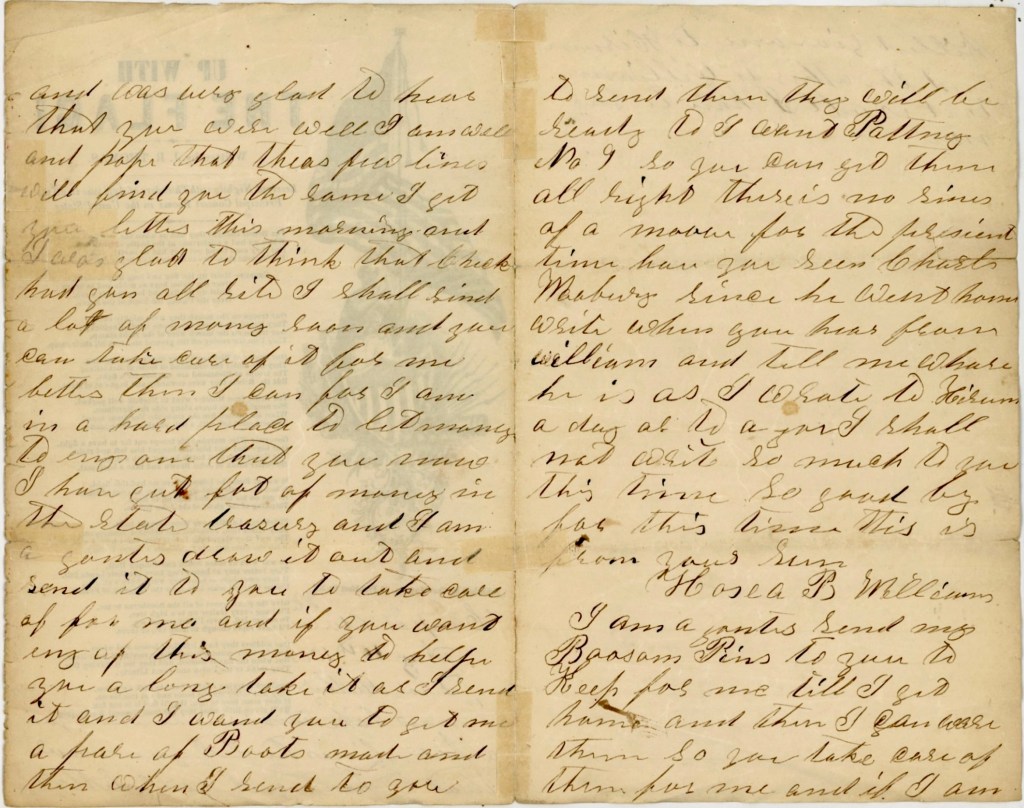 and was very glad to hear
that you were well I am well
and hope that theas few lines
will find you the same I got
your letter this morning and
I was glad to think that Check
had gon all rite I shall send
a lot of money soon and you
can take care of it for me
better then I can for I am
in a hard place to let money
to eny one that you now
I have got lot of money in
the state tresury and I am
a gonter draw it out and
send it to you to take care
of for me and if you want
eny of this money to helpe
you a long take it as I send
it and I want you to get me
a pare of Boots mad and
then when I send to you
UP WITH
to send them they will be
ready to I want Pattney
No 9 so you can get them
all right there is no sines
of a moove for the presient
time have you seen Charls
since he went home
write when you hear from
william and tell me whare
he is as I wrote to Hirum
a day or to a gor I shall
not writ so much to you
this time so good by
for this time this is
from your sun
Hosea B Williams
I am a gonter send my
Boosom Pins to you to
Keep for me till I get
home and then I can ware
them so you take care of
them for me and if I am